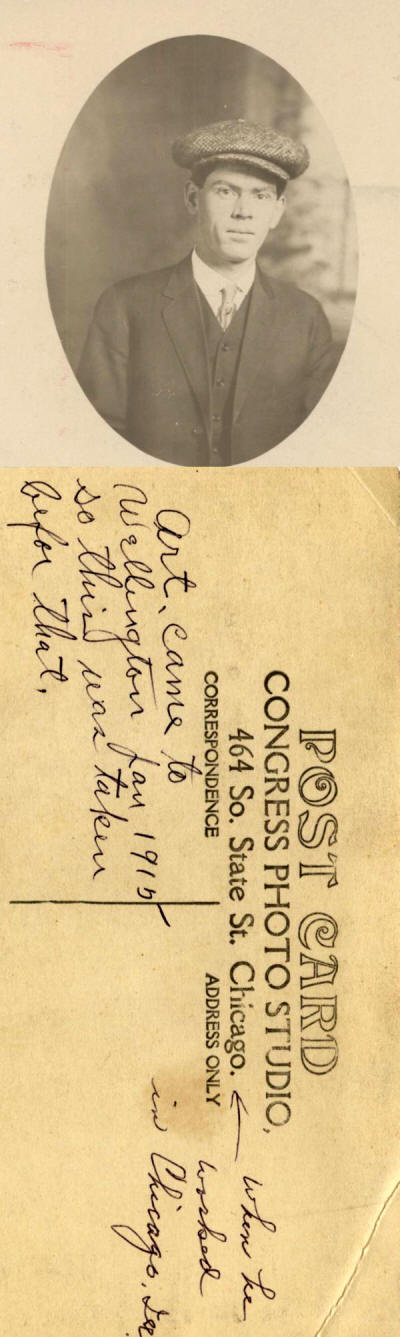 POST CARD
CONGRESS PHOTO STUDIO,
464 So. State St. Chicago.
CORRESPONDENCE
ADDRESS ONLY
Art. came to
Wellington Jan 1915
so this was taken
befor that.
when he
worked
in Chicago.